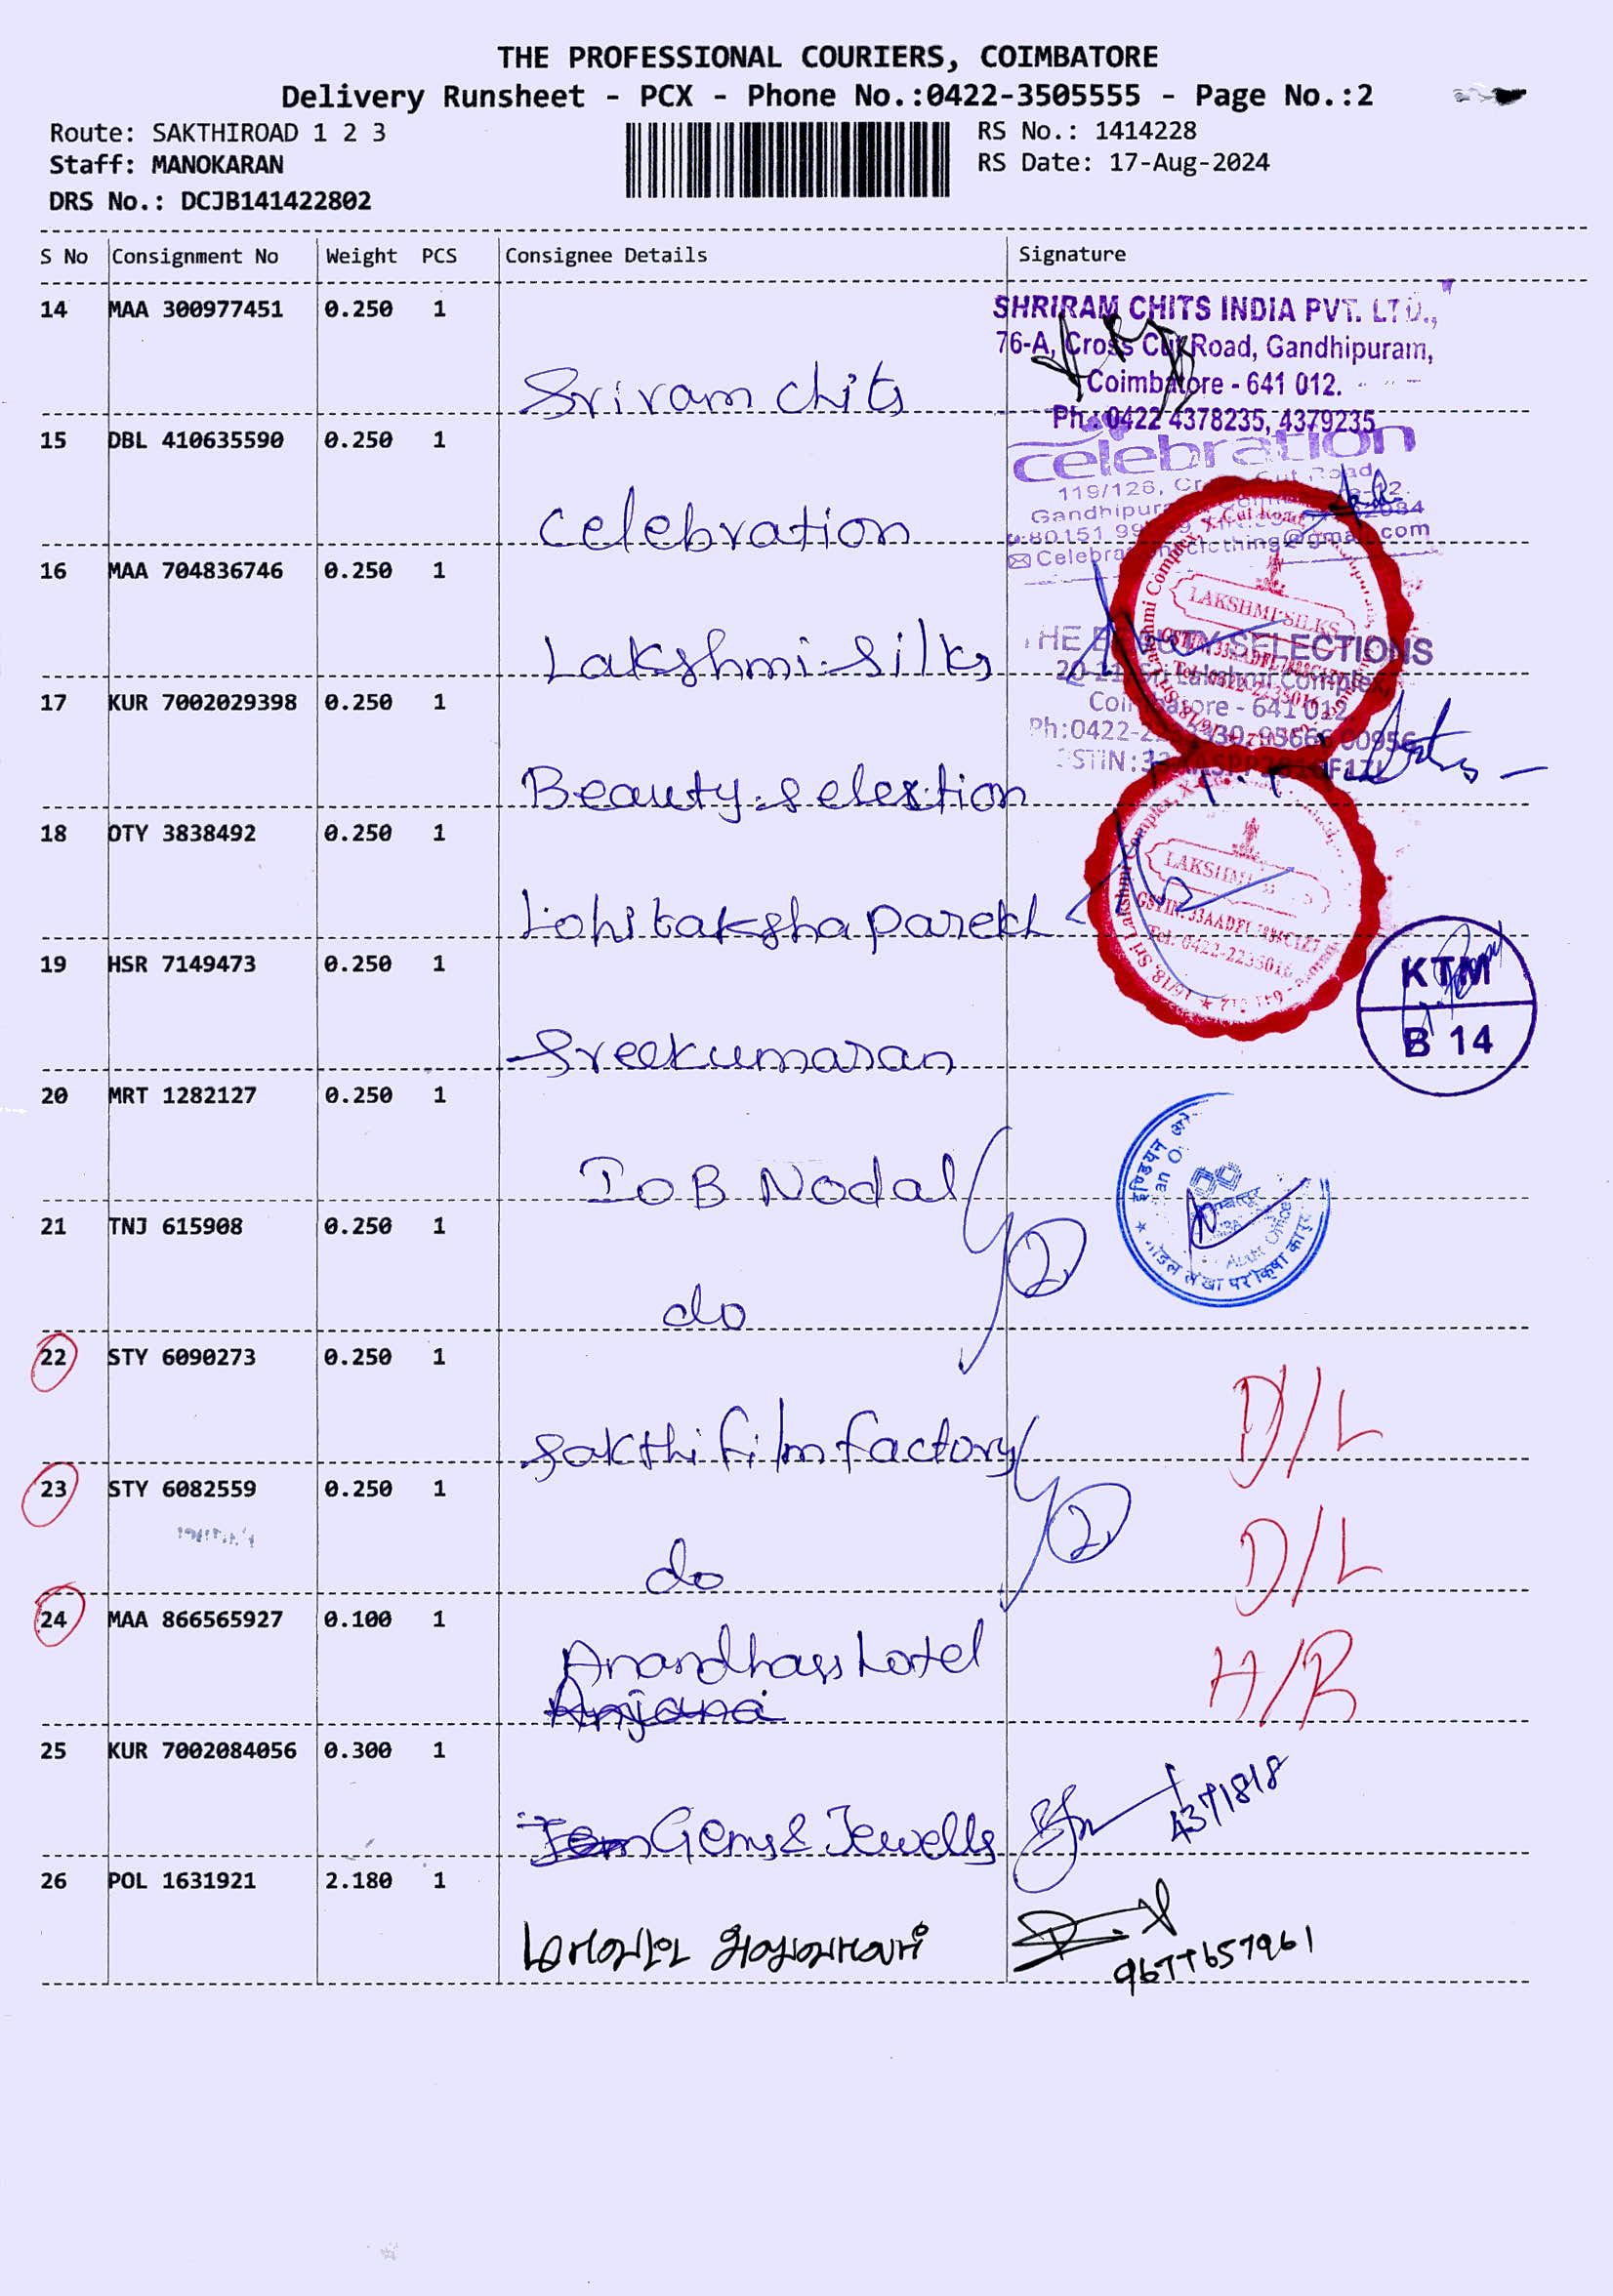 THE PROFESSIONAL COURIERS, COIMBATORE
Delivery Runsheet - PCX - Phone No.:0422-3505555 - Page No.:2
Route: SAKTHIROAD 1 2 3
Staff: MANOKARAN
DRS No.: DCJB141422802
RS No.: 1414228
RS Date: 17-Aug-2024
S No Consignment No Weight PCS Consignee Details Signature
14 MAA 300977451 0.250 1
Sriram chits
SHRIRAM CHITS INDIA PVT. LTD.,
76-A, Cross Cut Road, Gandhipuram,
Coimbatore - 641 012.
Ph.: 0422 4378235, 4379235
15 DBL 410635590 0.250 1
celebration
celebration
119/126,
Gandhipura
16 MAA 704836746 0.250 1
Lakshmi silks
LAKSHMI SILKS
17 KUR 7002029398 0.250 1
Beauty selection
THE BEAUTY SELECTIONS
20-21, Sri Lakshmi Complex,
Coimbatore - 641 012
18 OTY 3838492 0.250 1
Lohitaksha parekh
LAKSHMI
GSTIN: 33AADFL
Tel: 0422-2235016
19 HSR 7149473 0.250 1
Sreekumaran
KTM
B 14
20 MRT 1282127 0.250 1
IOB Nodal
21 TNJ 615908 0.250 1
do
2
22 STY 6090273 0.250 1
sakthi film factory
D/L
23 STY 6082559 0.250 1
do
2
D/L
24 MAA 866565927 0.100 1
Anandhass hotel
Anjana
H/R
25 KUR 7002084056 0.300 1
Jem Gems & Jewells
4371818
26 POL 1631921 2.180 1
9677657961